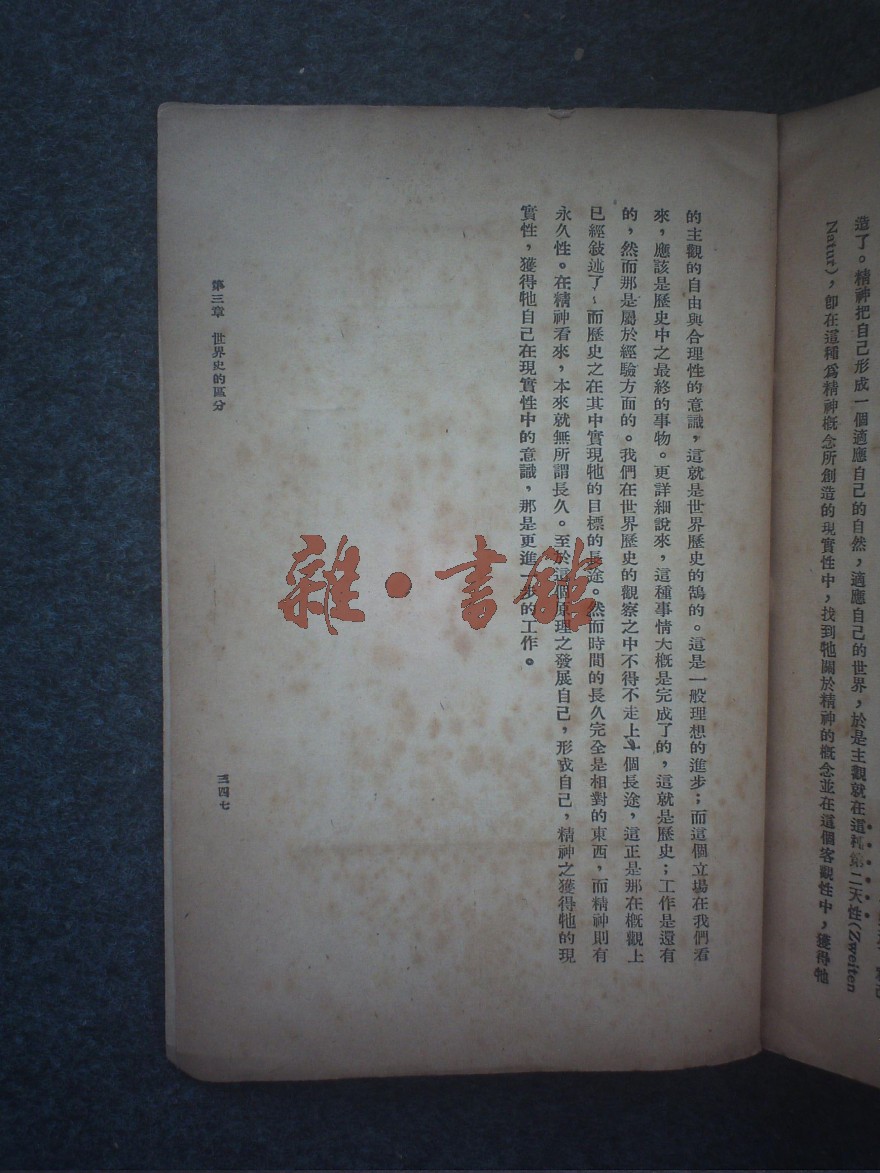 造了。精神把自己形成一個適應自己的自然，適應自己的世界，於是主觀就在這種第二天性(Zweiten
Natur)，卽在這種爲精神概念所創造的現實性中，找到牠關於精神的概念並在這個客觀性中，獲得牠
的主觀的自由與合理性的意識，這就是世界歷史的鵠的。這是一般理想的進步；而這個立場在我們看
來，應該是歷史中之最終的事物。更詳細說來，這種事情大概是完成了的，這就是歷史；工作是還有
的，然而那是屬於經驗方面的。我們在世界歷史的觀察之中不得不走上一個長途，這正是那在概觀上
已經敍述了、而歷史之在其中實現牠的目標的長途。然而時間的長久完全是相對的東西，而精神則有
永久性。在精神看來，本來就無所謂長久。至於這個原理之發展自己，形成自己，精神之獲得牠的現
實性，獲得牠自己在現實性中的意識，那是更進一步的工作。
第三章　世界史的區分
三四七
雜·書館